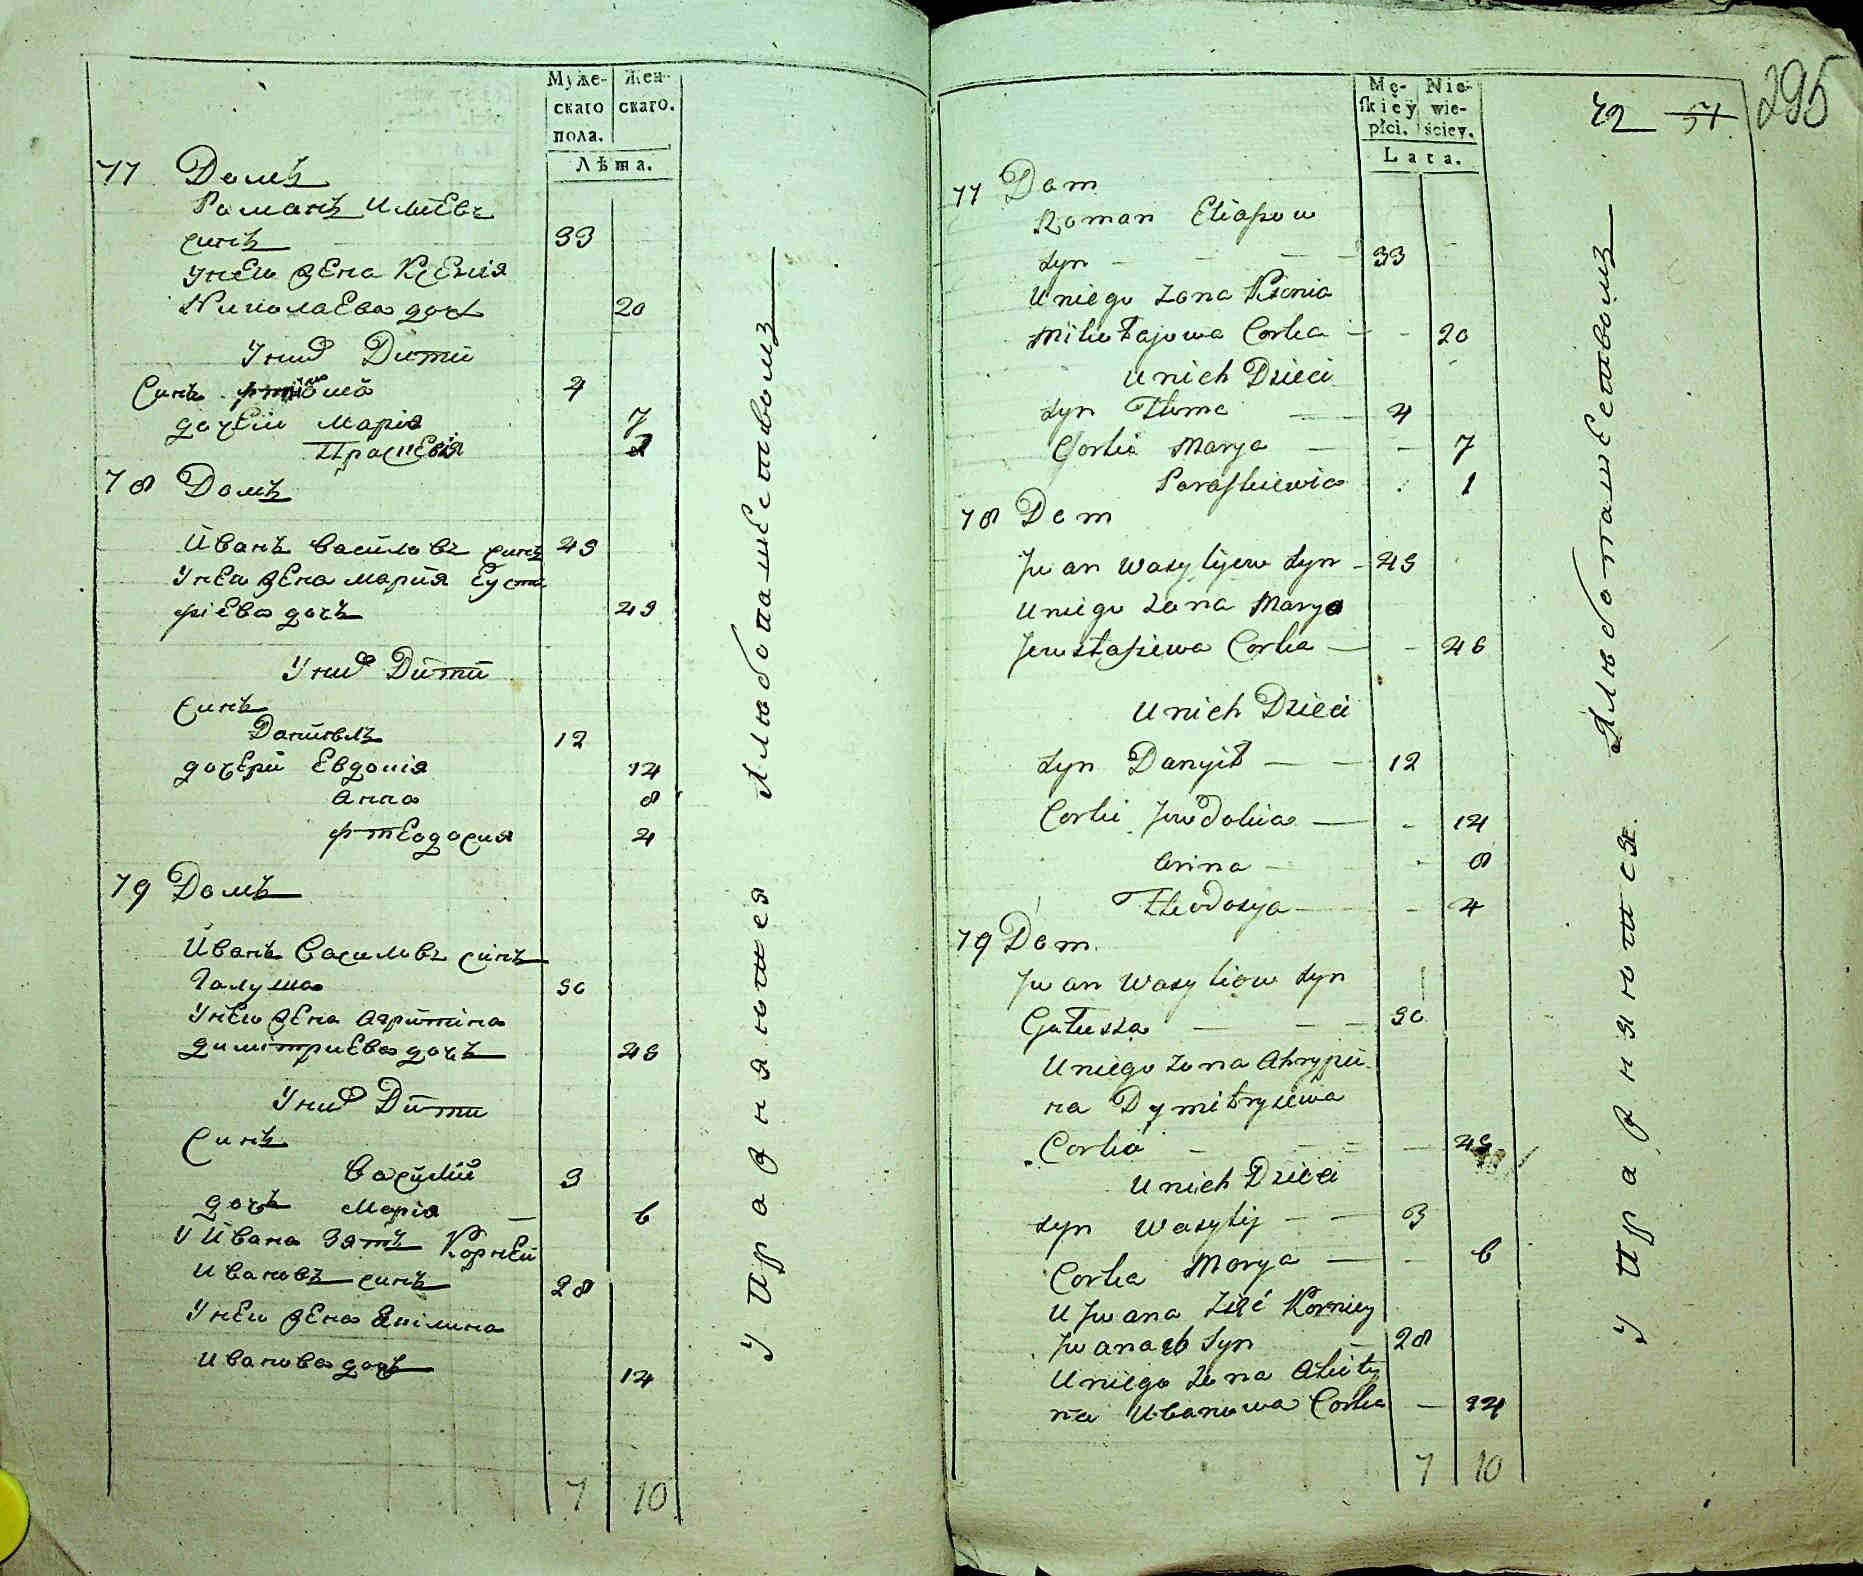 Муже-
скаго
пола.
Жен-
скаго.
Лѣта.
77 Домъ
Романъ Илиевъ
синъ 33
У него жена Ксения
Николаева дочь 20
У них Дити
Синъ Фтома 4
дочери Мария 7
Праскевія 1
78 Домъ
Иванъ Василовъ синъ 49
У него жена Мария Еуста
фиева дочъ 49
У них Дити
Синъ
Даниилъ 12
дочери Евдокия 14
Анна 8
Фтеодосия 4
79 Домъ
Иванъ Василовъ синъ
Галуша 50
У него жена Агрипина
Димитриева дочъ 49
У них Дити
Синъ
Василий 3
дочъ Мария 6
У Ивана Зять Корней
Ивановъ синъ 28
У него жена Акилина
Иванова дочъ 14
7 10
Упражняются Хлебопашествомъ
Mę-
skiey
płci.
Nie-
wie-
ściey.
Lata.
72 57 295
77 Dom
Roman Eliaszow
Syn 33
U niego Zona Ksenia
Mikołajowa Corka 20
U nich Dzieci
Syn Thoma 4
Corki Marya 7
Paraskiewia 1
78 Dom
Jwan Wasylijew Syn 49
U niego Zona Marya
Jewstafiewa Corka 46
U nich Dzieci
Syn Danyił 12
Corki Jewdokia 14
Anna 8
Theodosya 4
79 Dom
Jwan Wasyliow Syn
Gałusza 50
U niego Zona Ahrypi
na Dymitryiewa
Corka 49
U nich Dzieci
Syn Wasylij 3
Corka Marya 6
U Jwana Zięć Korniey
Jwanow Syn 28
U niego Zona Akiły
na Iwanowa Corka 14
7 10
Упражняются Хлебопашествомъ